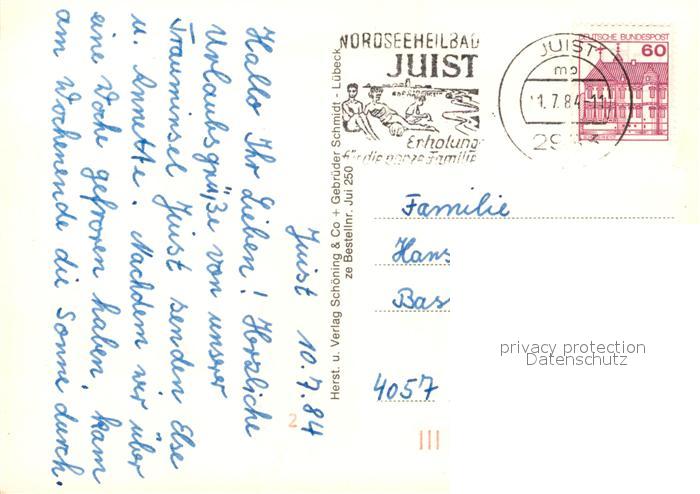 Juist 10.7.84
Hallo Ihr Lieben! Herzliche
Urlaubsgrüße von unserer
Trauminsel Juist senden Else
u. Annette. Nachdem wir über
eine Woche gefroren haben, kam
am Wochenende die Sonne durch.
Herst. u. Verlag Schöning & Co + Gebrüder Schmidt - Lübeck
ze Bestellnr. Jui 250
NORDSEEHEILBAD
JUIST
Erholung
für die ganze Familie
JUIST
1.7.84-11
DEUTSCHE BUNDESPOST
60
Familie
Hans
Bas
4057
privacy protection
Datenschutz
2